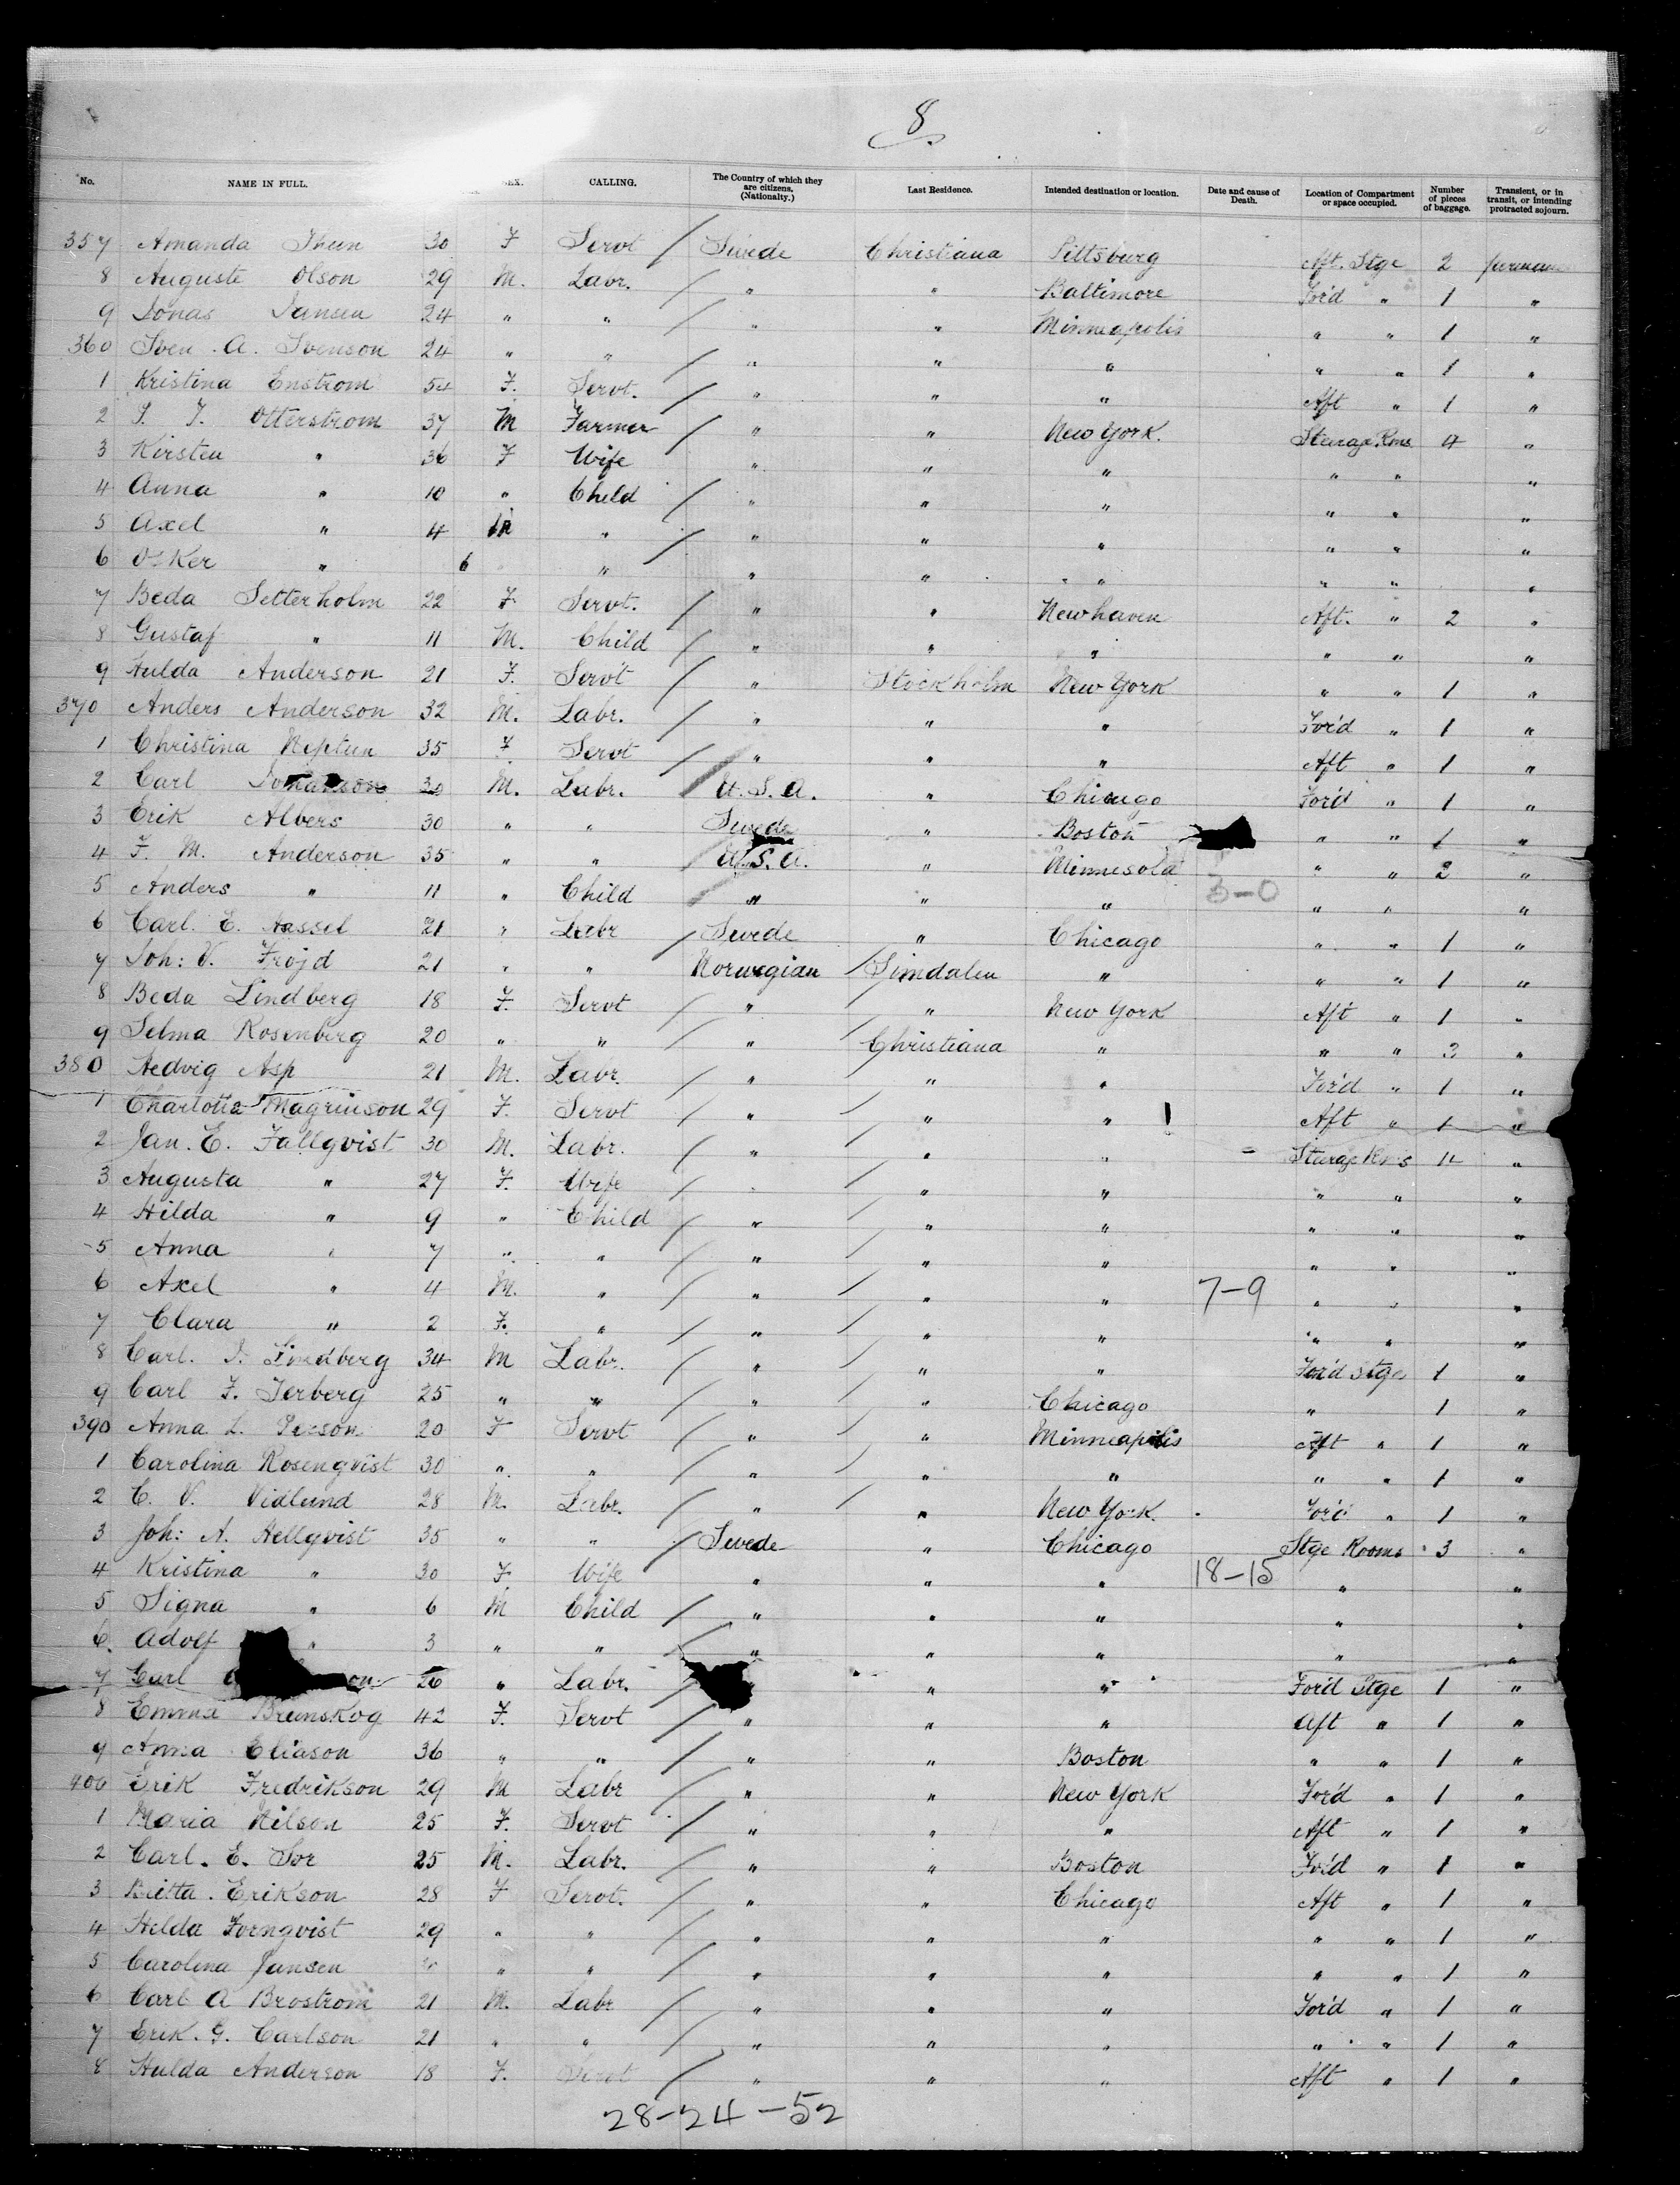 8
No. NAME IN FULL. SEX. CALLING. The Country of which they are citizens. (Nationalty.) Last Residence. Intended destination or location. Date and cause of Death. Location of Compartment or space occupied. Number of pieces of baggage. Transient, or in transit, or intending protracted sojourn.
357 Amanda Thun 30 F Servt / Swede Christiana Pittsburg Aft. Stge 2
8 Auguste Olson 29 M. Labr. / " " Baltimore For'd " 1 "
9 Jonas Jansen 24 " " / " " Minneapolis " " 1 "
360 Sven . A. Svenson 24 " " / " " " " " 1 "
1 Kristina Enstrom 54 F. Servt. / " " " Aft " 1 "
2 Otterstrom 37 M Farmer / " " New York. Sterage Rms 4 "
3 Kirsten " 36 F Wife / " " " " " "
4 Anna " 10 " Child / " " " " " "
5 Axel " 4 M " / " " " " " "
6 Osker " 6 " " / " " " " " "
7 Beda Setterholm 22 F Servt. / " " Newhaven Aft. " 2 "
8 Gustaf " 11 M. Child / " " " " " "
9 Hulda Anderson 21 F. Servt / " Stockholm New York " " 1 "
370 Anders Anderson 32 M. Labr. / " " " For'd " 1 "
1 Christina Neptun 35 F Servt / " " " Aft " 1 "
2 Carl 30 M. Labr. / U.S.A. " Chicago For'd " 1 "
3 Erik Albers 30 " " / Swede " Boston " " 1 "
4 F. M. Anderson 35 " " / U.S.A. " Minnesota " " 2 "
5 Anders " 11 " Child / " " " 3-0 " " "
6 Carl. E. Hassel 21 " Labr / Swede " Chicago " " 1 "
7 Joh: V. Frojd 21 " " Norwegian / Simdalen " " " 1 "
8 Beda Lindberg 18 F. Servt / " / " New York Aft " 1 "
9 Selma Rosenberg 20 " " / " / Christiana " " " "
380 Hedvig Asp 21 M. Labr. / " / " " For'd " 1 "
1 Charlotta Magnuson 29 F. Servt / " / " " Aft " 1 "
2 Jan. E. Fallqvist 30 M. Labr. / " / " " Sterage Rms 4 "
3 Augusta " 27 F. Wife / " / " " " " "
4 Hilda " 9 " Child / " / " " " " "
5 Anna " 7 " " / " / " " " " "
6 Axel " 4 M. " / " / " " 7-9 " " "
7 Clara " 2 F. " / " / " " " " "
8 Carl. J. Lindberg 34 M Labr. / " / " " For'd Stge 1 "
9 Carl F. Terberg 25 " " / " / " Chicago " 1 "
390 Anna L. Person 20 F Servt / " / " Minneapolis Aft " 1 "
1 Carolina Rosenqvist 30 " " / " / " " " " 1 "
2 C. V. Vidlund 28 M. Labr. / " / " New York. For'd " 1 "
3 Joh: A. Hellqvist 35 " " / Swede " Chicago Stge Rooms 3 "
4 Kristina " 30 F Wife / " " " 18-15 " "
5 Signa " 6 M Child / " " " " "
6. Adolf " 3 " " / " " " " "
7 Carl on 26 " Labr. / " " " For'd Stge 1 "
8 Emma Brunskog 42 F. Servt / " " " Aft " 1 "
9 Anna Eliason 36 " " / " " Boston " " 1 "
400 Erik Fredrikson 29 M Labr / " " New York For'd " 1 "
1 Maria Nilson 25 F. Servt / " " " Aft " 1 "
2 Carl. E. Sor 25 M. Labr. / " " Boston For'd " 1 "
3 Britta. Erikson 28 F Servt. / " " Chicago Aft " 1 "
4 Helda Fornqvist 29 " " / " " " " " 1 "
5 Carolina Jansen " " / " " " " " 1 "
6 Carl A Brostrom 21 M. Labr / " " " For'd " 1 "
7 Erik. G. Carlson 21 " " / " " " " " 1 "
8 Hulda Anderson 18 F. Servt / " " " Aft " 1 "
28-24-52